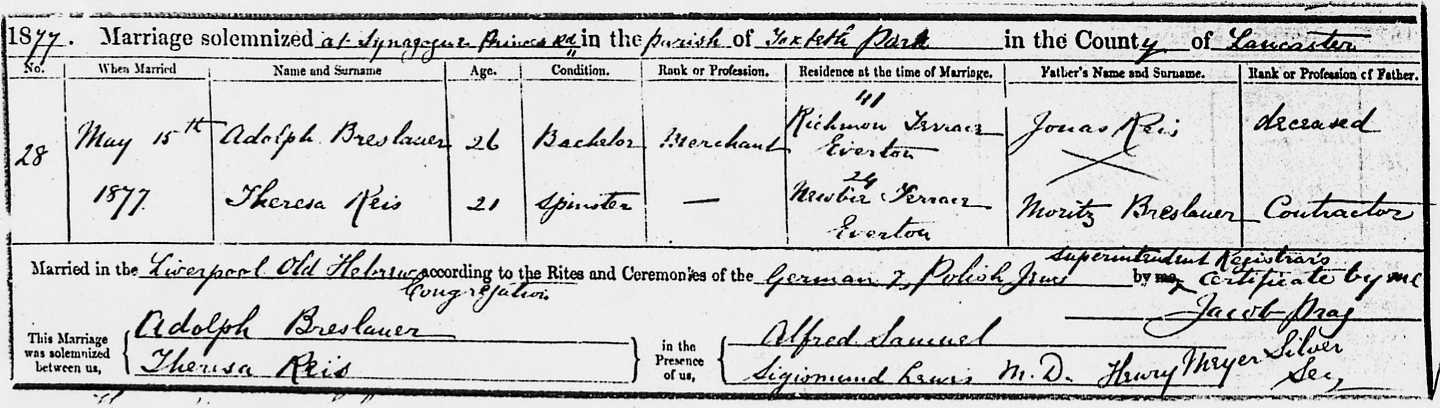 1877. Marriage solemnized at Synagogue Princes Rd in the parish of Toxteth Park in the County of Lancaster
No. When Married Name and Surname Age. Condition. Rank or Profession. Residence at the time of Marriage. Father's Name and Surname. Rank or Profession of Father.
28 May 15th Adolph Breslauer 26 Bachelor Merchant 41 Richmon Terrace Everton Jonas Reis deceased
1877. Theresa Reis 21 Spinster — 24 Terrace Everton Moritz Breslauer Contractor
Married in the Liverpool Old Hebrew Congregation according to the Rites and Ceremonies of the German & Polish Jews by me, Superintendent Registrars Certificate by me
Jacob Prag
This Marriage was solemnized between us, { Adolph Breslauer } in the Presence of us, { Alfred Samuel
Theresa Reis Sigismund Lewis M.D. Henry Meyer Silver
Sec,